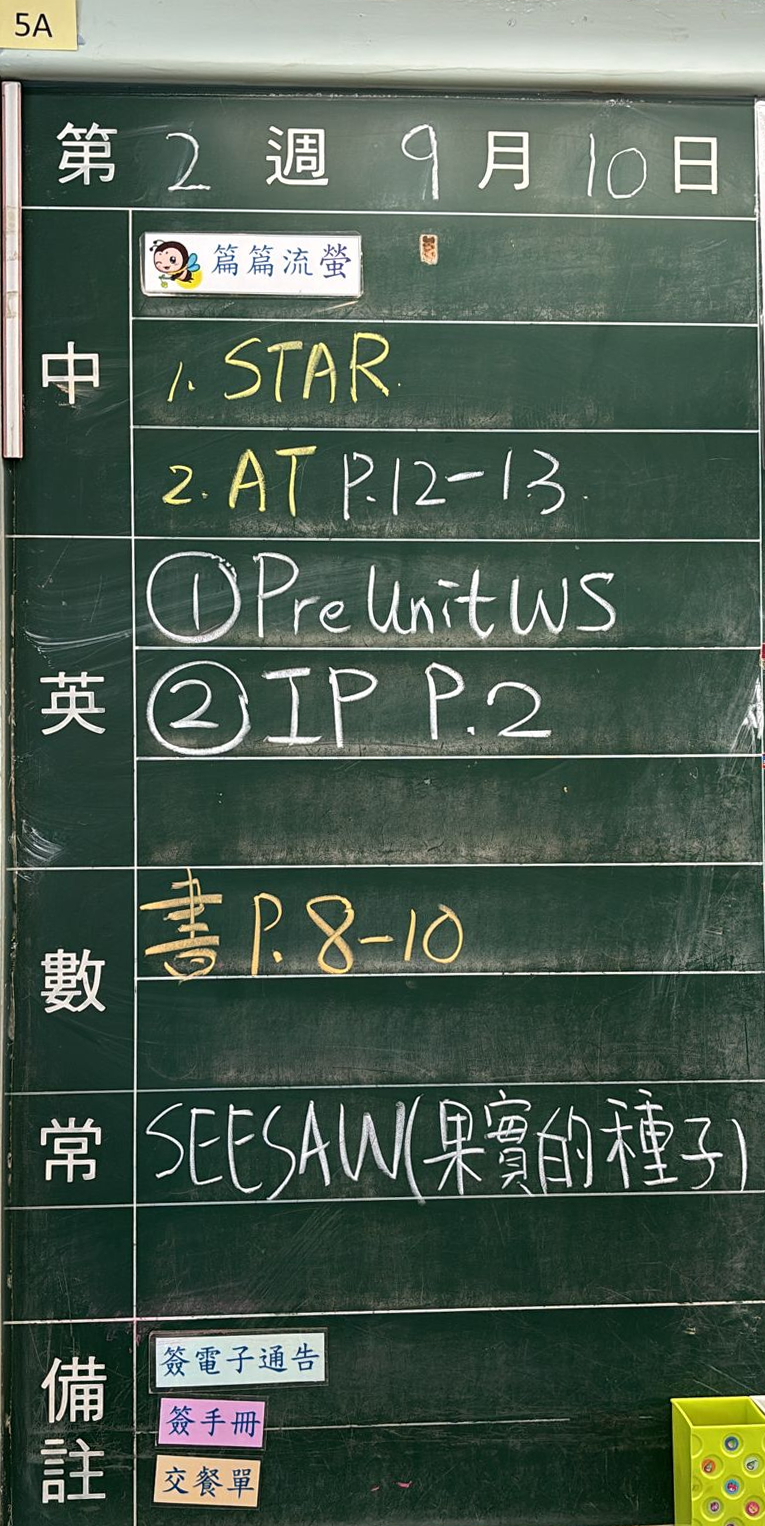 5A
第 2 週 9 月 10 日
中
篇篇流螢
1. STAR.
2. AT P.12-13.
英
① Pre Unit WS
② IP P.2
數
書 P.8-10
常
SEESAW(果實的種子)
備註
簽電子通告
簽手冊
交餐單